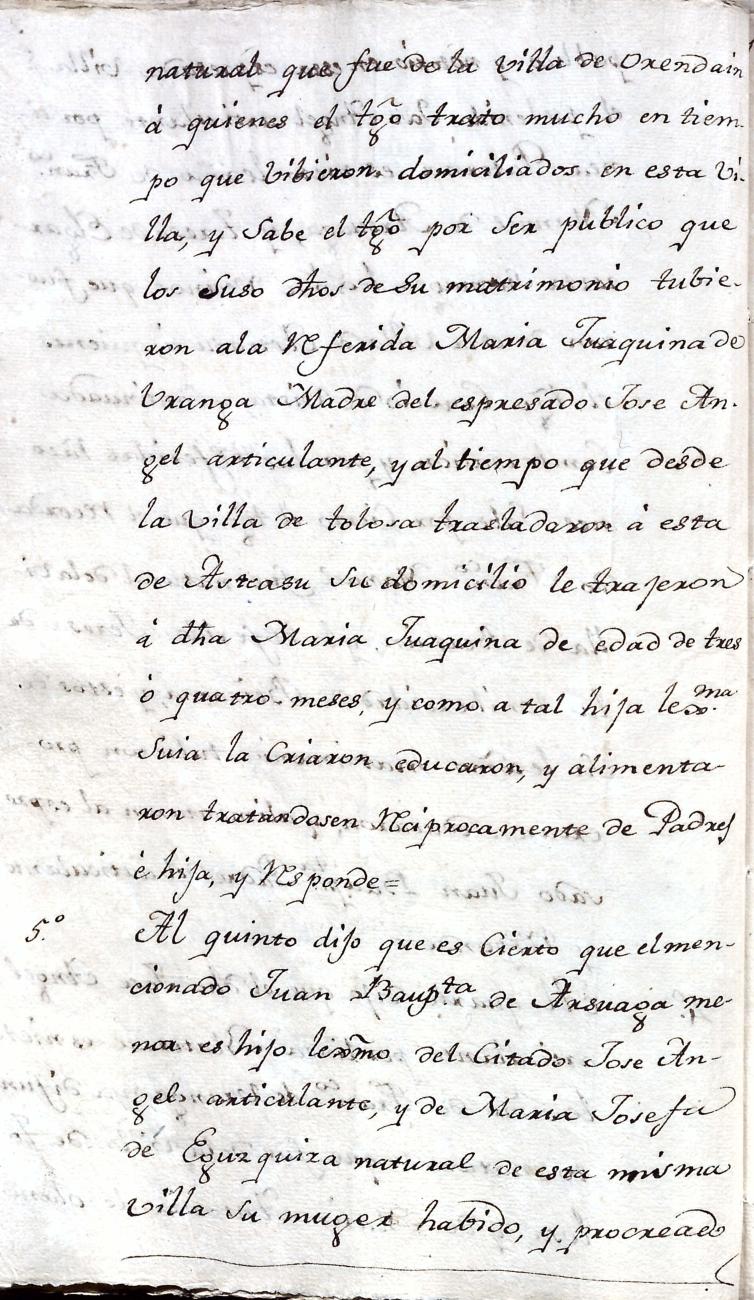 natural que fue de la villa de Orendain
á quienes el tgõ trato mucho en tiem-
po que bibieron domiciliados en esta Vi-
lla, y Sabe el tgõ por Ser publico que
los Suso dhos de Su matrimonio tubie-
ron ala Rferida Maria Juaquina de
Vranga Madre del espresado Jose An-
gel articulante, y al tiempo que desde
la villa de tolosa trasladaron á esta
de Asteasu Su domicilio le trajeron
á dha Maria Juaquina de edad de tres
ó quatro meses, y como a tal hija lexma
Suia la Criaron educaron, y alimenta-
ron tratandosen Rciprocamente de Padres
é hija, y Rsponde=
5.º Al quinto dijo que es Cierto que el men-
cionado Juan Baupta de Arsuaga me-
nor es hijo lexmo del Citado Jose An-
gel articulante, y de Maria Josefa
de Eguzquiza natural de esta misma
villa Su muger habido, y procreado